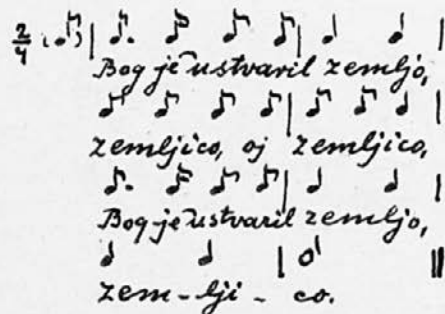 2/4
Bog je ustvaril zemljo,
zemljico, oj zemljico,
Bog je ustvaril zemljo,
zem-lji-co.